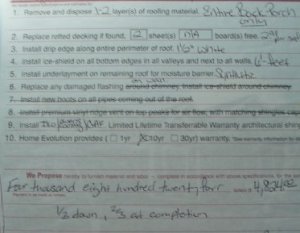 1. Remove and dispose 1-2 layer(s) of roofing material. Entire Back Porch
only
2. Replace rotted decking if found, 2 sheet(s) n/a board(s) free.
3. Install drip edge along entire perimeter of roof. White
4. Install ice-shield on all bottom edges in all valleys and next to all walls. 6 feet
5. Install underlayment on remaining roof for moisture barrier. Synthetic
6. Replace any damaged flashing around chimney. Install ice-shield around chimney
7. Install new boots on all pipes coming out of the roof.
8. Install premium vinyl ridge vent on top peaks for air flow, with matching shingles caps
9. Install GAF Limited Lifetime Transferrable Warranty architectural shin
10. Home Evolution provides ( 1yr 10yr 30yr) warranty.
We Propose hereby to furnish material and labor - complete in accordance with above specifications, for the sum
Four thousand eight hundred twenty four 4,824.00
1/3 down, 2/3 at completion